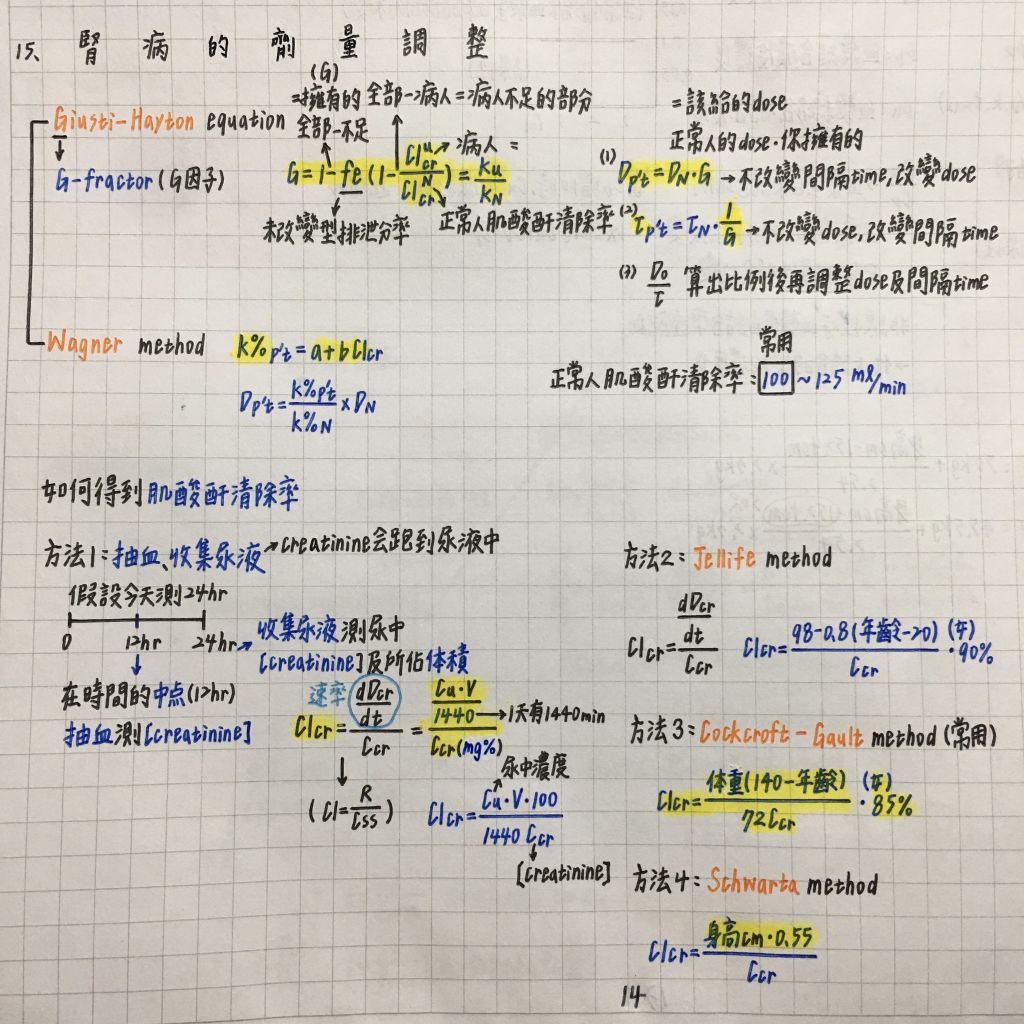 15、腎病的劑量調整
Giusti-Hayton equation
G-fractor (G因子)
(G)
=擁有的 全部-病人=病人不足的部份
全部-不足
病人 =
G=1-fe(1-Cl^u_cr/Cl^N_cr)=ku/kN
未改變型排泄分率
正常人肌酸酐清除率
=該給的dose
正常人的dose·你擁有的
(1) Dp't=DN·G→不改變間隔time,改變dose
(2) τp't=τN·1/G→不改變dose,改變間隔time
(3) D0/τ 算出比例後再調整dose及間隔time
Wagner method k%p't=a+bClcr
Dp't=k%p't/k%N×DN
常用
正常人肌酸酐清除率:100~125 ml/min
如何得到肌酸酐清除率
方法1:抽血、收集尿液→creatinine会跑到尿液中
假設今天測24hr
0 12hr 24hr→收集尿液測尿中
[creatinine]及所佔体積
在時間的中点(12hr)
抽血測[creatinine]
速率
Clcr=(dDcr/dt)/Ccr=(Cu·V/1440)/Ccr(mg%)
→1天有1440min
(Cl=R/Css)
尿中濃度
Clcr=Cu·V·100/1440 Ccr
[creatinine]
方法2:Jellife method
Clcr=(dDcr/dt)/Ccr Clcr=98-0.8(年齡-20)/Ccr (女)·90%
方法3:Cockcroft-Gault method(常用)
Clcr=体重(140-年齡)/72Ccr (女)·85%
方法4:Schwarta method
Clcr=身高cm·0.55/Ccr
14